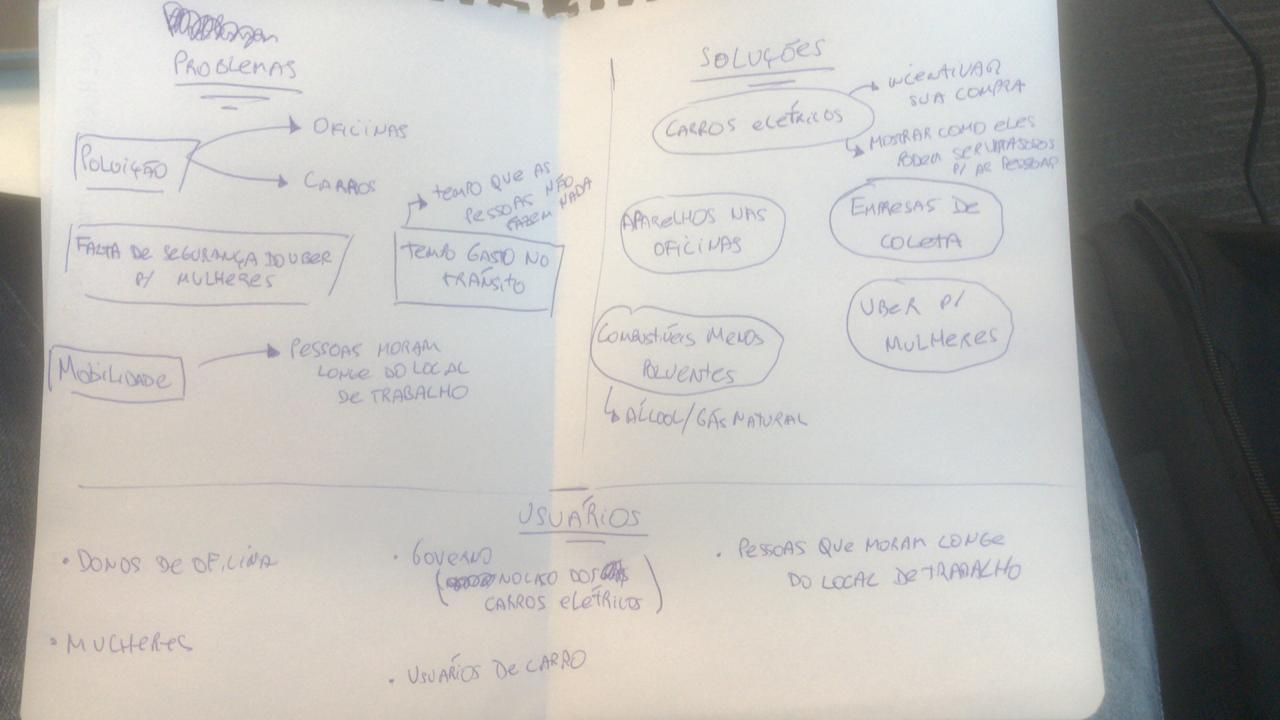 PROBLEMAS
POLUIÇÃO
OFICINAS
CARROS
FALTA DE SEGURANÇA DO UBER
P/ MULHERES
TEMPO QUE AS
PESSOAS NÃO
FAZEM NADA
TEMPO GASTO NO
TRÂNSITO
MOBILIDADE
PESSOAS MORAM
LONGE DO LOCAL
DE TRABALHO
SOLUÇÕES
CARROS ELÉTRICOS
INCENTIVAR
SUA COMPRA
MOSTRAR COMO ELES
PODEM SER
P/ AS PESSOAS
APARELHOS NAS
OFICINAS
EMPRESAS DE
COLETA
COMBUSTÍVEIS MENOS
POLUENTES
ÁLCOOL/GÁS NATURAL
UBER P/
MULHERES
USUÁRIOS
• DONOS DE OFICINA
• MULHERES
• GOVERNO
( NO CASO DOS
CARROS ELÉTRICOS)
• USUÁRIOS DE CARRO
• PESSOAS QUE MORAM LONGE
DO LOCAL DE TRABALHO